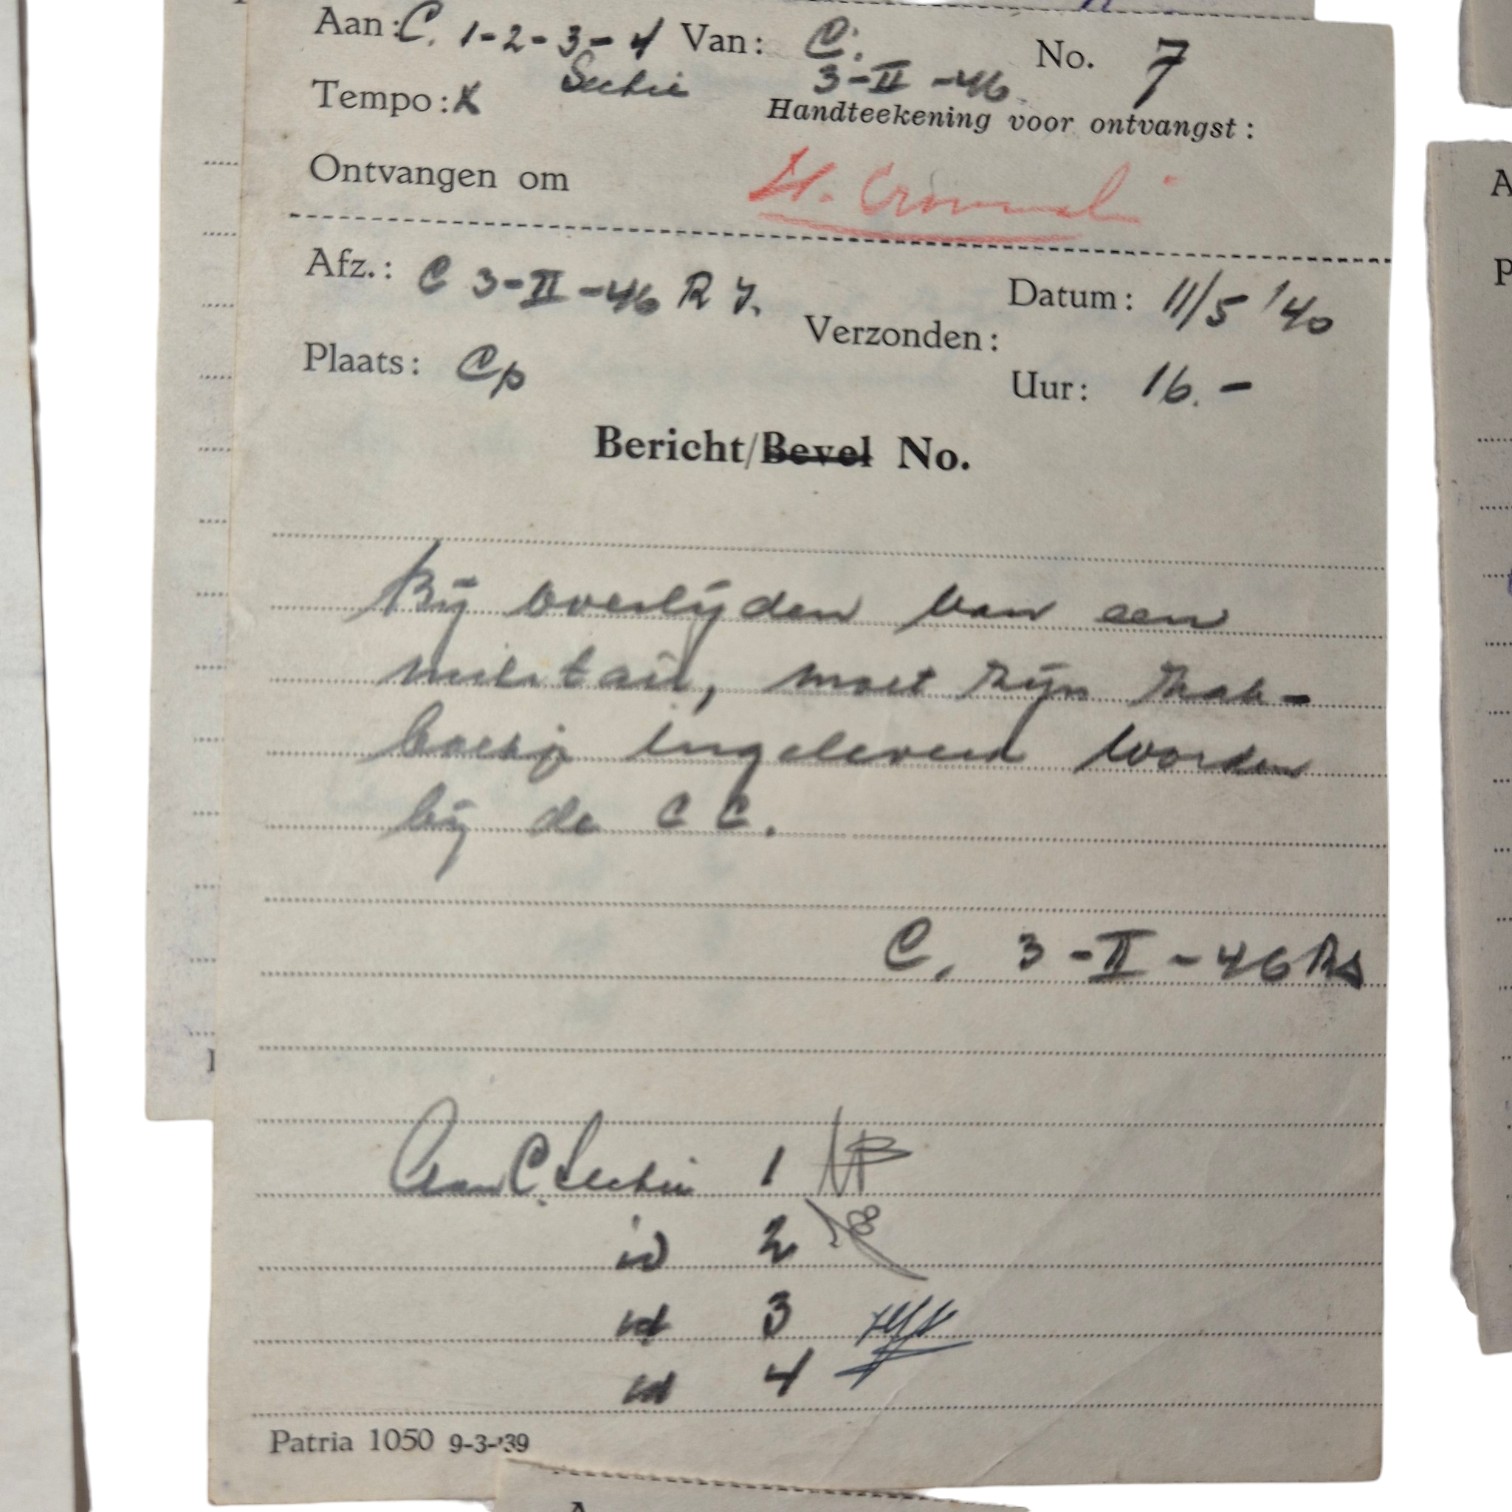 Aan: C. 1-2-3-4 Van: C. No. 7
Sectie 3-II-46
Tempo: X Handteekening voor ontvangst:
Ontvangen om
Afz.: C 3-II-46 R I. Datum: 11/5 '40
Verzonden:
Plaats: Cp Uur: 16.-
Bericht/Bevel No.
Bij overlijden van een
militair, moet zijn zak-
boekje ingeleverd worden
bij de CC.
C. 3-II-46 R
Aan C. Sectie 1
id 2
id 3
id 4
Patria 1050 9-3-'39